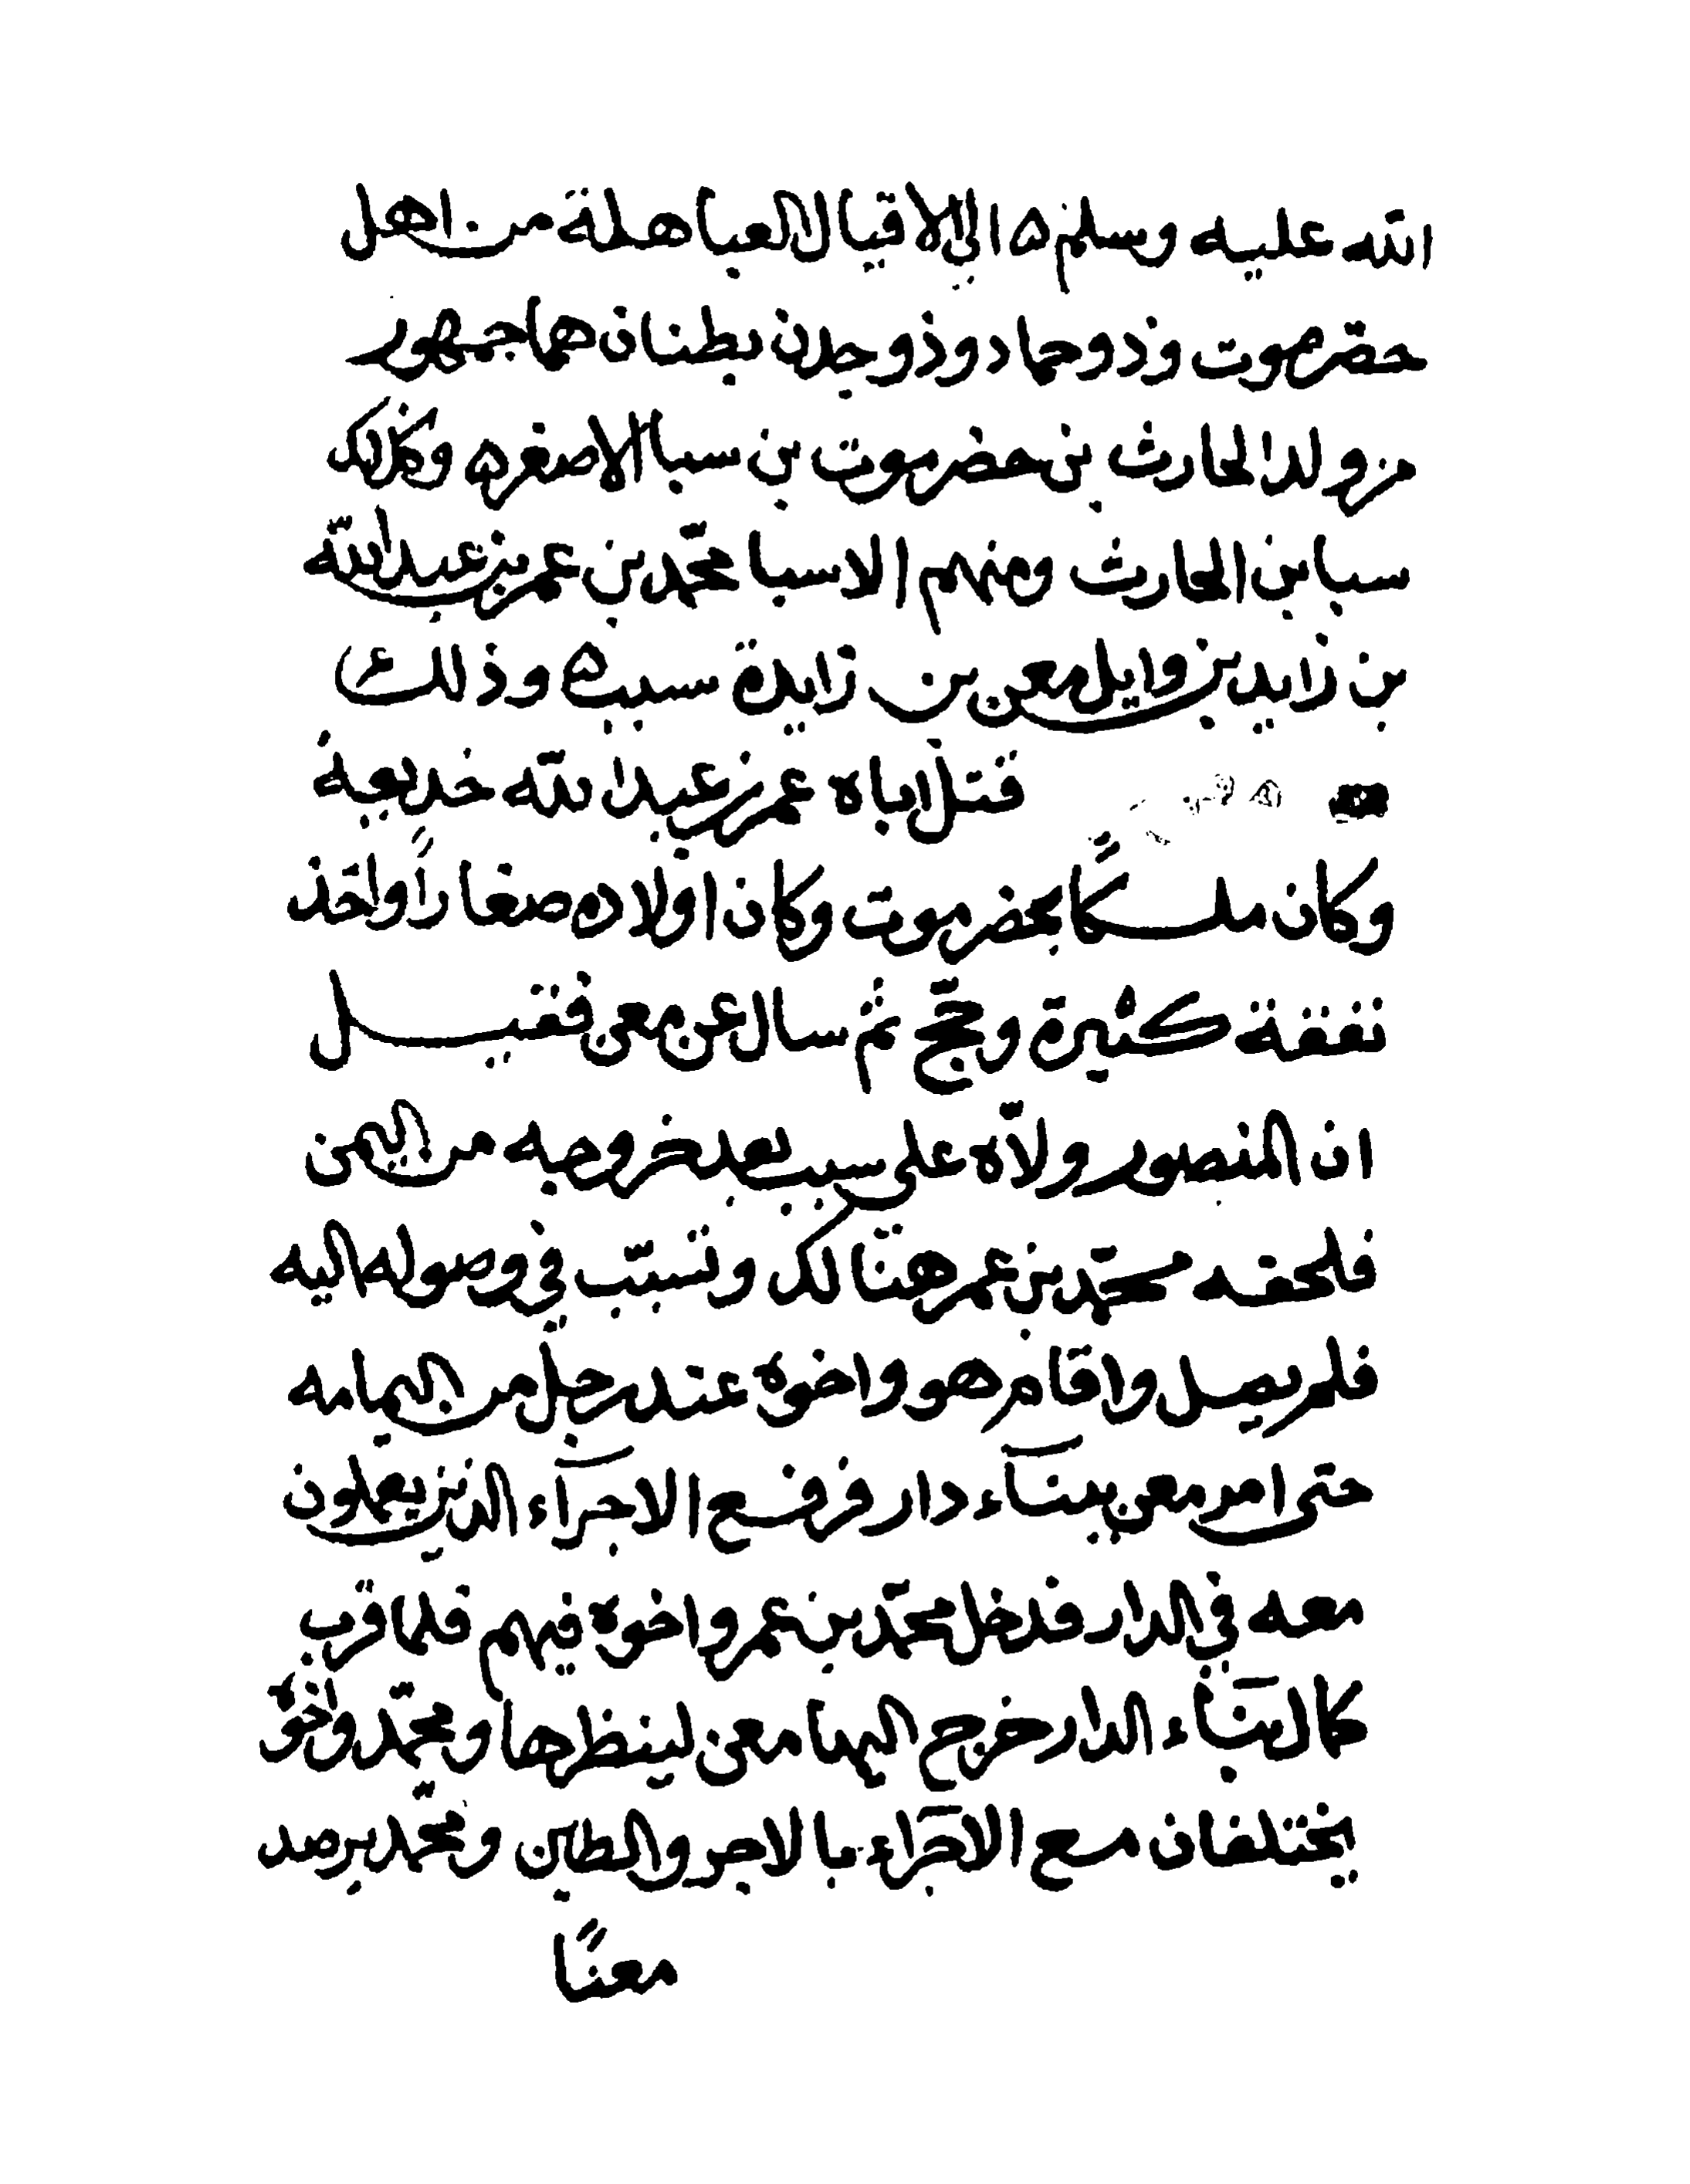 الله عليه وسلم ۵ الى الاقيال العباهلة من اهل
حضرموت وذوحماد وذوجدن بطنان هما جمهور
من ولد الحارث بن حضرموت بن سبا الاصغر ۵ وكذلك
سبا بن الحارث ومنهم الاسبا محمّد بن عمر بن عبد الله
بن زايد بن وايل معن بن زايدة سبب ۵ وذلك
قتل اباه عمر بن عبد الله خديعة
وكان ملكًا بحضرموت وكان اولاده صغاراً واخذ
نفقة كثيرة وحجّ ثم سال عن معن فقيل
ان المنصور ولّاه على سبب بعد خروجه من اليمن
فلحقه محمّد بن عمر هنالك وتسبّب في وصوله اليه
فلم يصل واقام هو واخوه عند رجل من اليمامه
حتى امر معن ببنآء دار فرفع الاجرآء الذين يعملون
معه في الدار فدخل محمّد بن عمر واخوه فيهم فلما قرب
كمال بنآء الدار خرج اليها معن لينظرها ومحمّد واخوه
يختلفان مع الاجرآء بالاجر والطين ومحمّد يرصد
معنًا